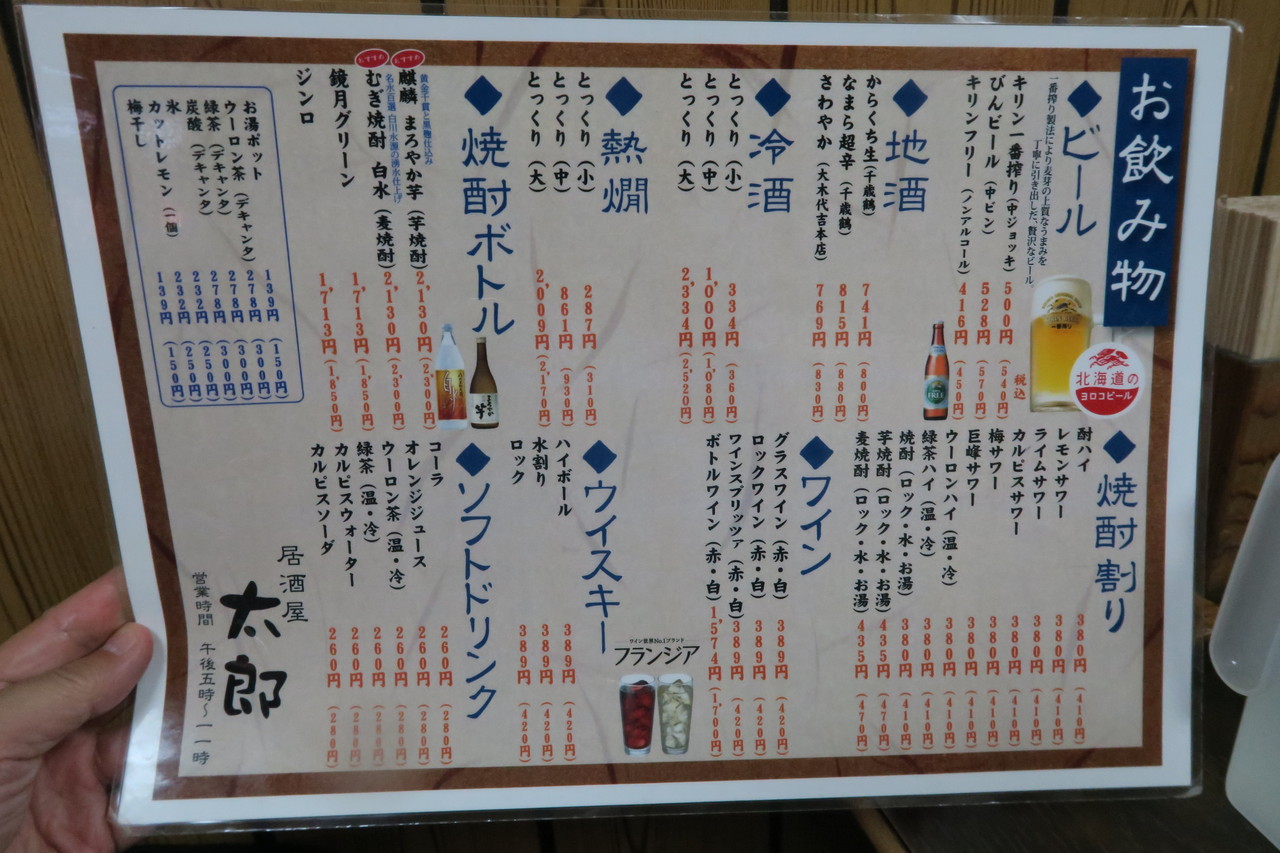 お飲み物
◆ビール
一番搾り製法により麦芽の上質なうまみを
丁寧に引き出した、贅沢なビール。
キリン一番搾り（中ジョッキ） 500円（540円）
税込
びんビール（中ビン） 528円（570円）
キリンフリー（ノンアルコール） 416円（450円）
一番搾り
北海道の
ヨロコビール
FREE
◆地酒
からくち生（千歳鶴） 741円（800円）
なまら超辛（千歳鶴） 815円（880円）
さわやか（大木代吉本店） 769円（830円）
◆冷酒
とっくり（小） 334円（360円）
とっくり（中） 1,000円（1080円）
とっくり（大） 2,334円（2,520円）
◆熱燗
とっくり（小） 287円（310円）
とっくり（中） 861円（930円）
とっくり（大） 2,009円（2,170円）
◆焼酎ボトル
おすすめ
黄金千貫と黒麹仕込み
麒麟 まろやか芋（芋焼酎） 2,130円（2,300円）
おすすめ
名水百選 白川水源の湧水仕上げ
むぎ焼酎 白水（麦焼酎） 2,130円（2,300円）
鏡月グリーン 1,713円（1,850円）
ジンロ 1,713円（1,850円）
お湯ポット 139円（150円）
ウーロン茶（デキャンタ） 278円（300円）
緑茶（デキャンタ） 278円（300円）
炭酸（デキャンタ） 232円（250円）
氷 232円（250円）
カットレモン（一個）
梅干し 139円（150円）
◆焼酎割り
酎ハイ 380円（410円）
レモンサワー 380円（410円）
ライムサワー 380円（410円）
カルピスサワー 380円（410円）
梅サワー 380円（410円）
巨峰サワー 380円（410円）
ウーロンハイ（温・冷） 380円（410円）
緑茶ハイ（温・冷） 380円（410円）
焼酎（ロック・水・お湯） 380円（410円）
芋焼酎（ロック・水・お湯） 435円（470円）
麦焼酎（ロック・水・お湯） 435円（470円）
◆ワイン
グラスワイン（赤・白） 389円（420円）
ロックワイン（赤・白） 389円（420円）
ワインスプリッツァ（赤・白） 389円（420円）
ボトルワイン（赤・白） 1,574円（1,700円）
ワイン世界No.1ブランド
フランジア
◆ウイスキー
ハイボール 389円（420円）
水割り 389円（420円）
ロック 389円（420円）
◆ソフトドリンク
コーラ 260円（280円）
オレンジジュース 260円（280円）
ウーロン茶（温・冷） 260円（280円）
緑茶（温・冷） 260円（280円）
カルピスウォーター 260円（280円）
カルピスソーダ 260円（280円）
居酒屋
太郎
営業時間 午後五時～一一時